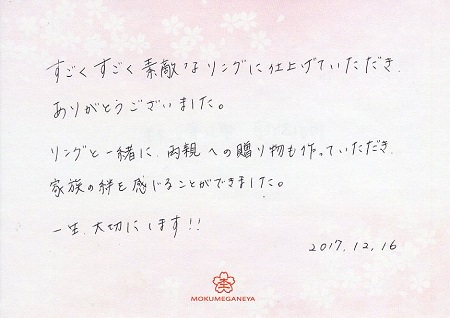 すごくすごく素敵なリングに仕上げていただき、
ありがとうございました。
リングと一緒に、両親への贈り物も作っていただき、
家族の絆を感じることができました。
一生、大切にします!!
2017.12.16
MOKUMEGANEYA